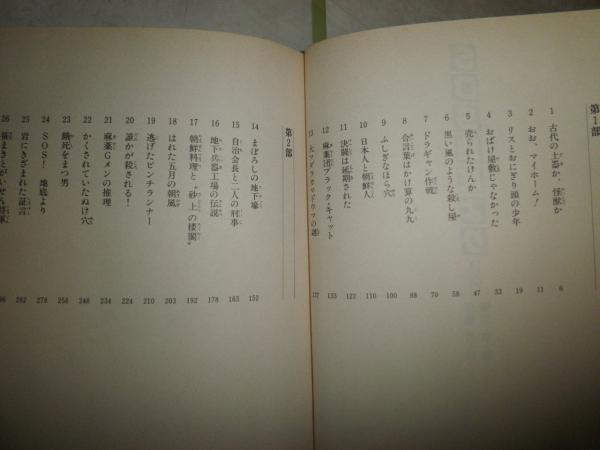 第1部
1 古代の土器か、怪獣か 6
2 おお、マイホーム! 11
3 リスとおにぎり頭の少年 19
4 おばけ屋敷じゃなかった 33
5 売られたけんか 47
6 黒い風のような殺し屋 58
7 ドラギャン作戦 70
8 合言葉はかけ算の九九 88
9 ふしぎなほら穴 100
10 日本人と朝鮮人 110
11 決闘は延期された 122
12 麻薬団ブラック・キャット 133
13 大マグラカマドウマの謎 137
第2部
14 まぼろしの地下壕 152
15 自治会長と二人の刑事 165
16 地下兵器工場の伝説 178
17 朝鮮料理と“砂上の楼閣” 192
18 はれた五月の朝風 203
19 逃げたピンチランナー 210
20 誰かが殺される! 224
21 麻薬Gメンの推理 234
22 かくされていたぬけ穴 248
23 餓死をまつ男 256
24 SOS! 地底より 278
25 岩にきざまれた証言 282
26